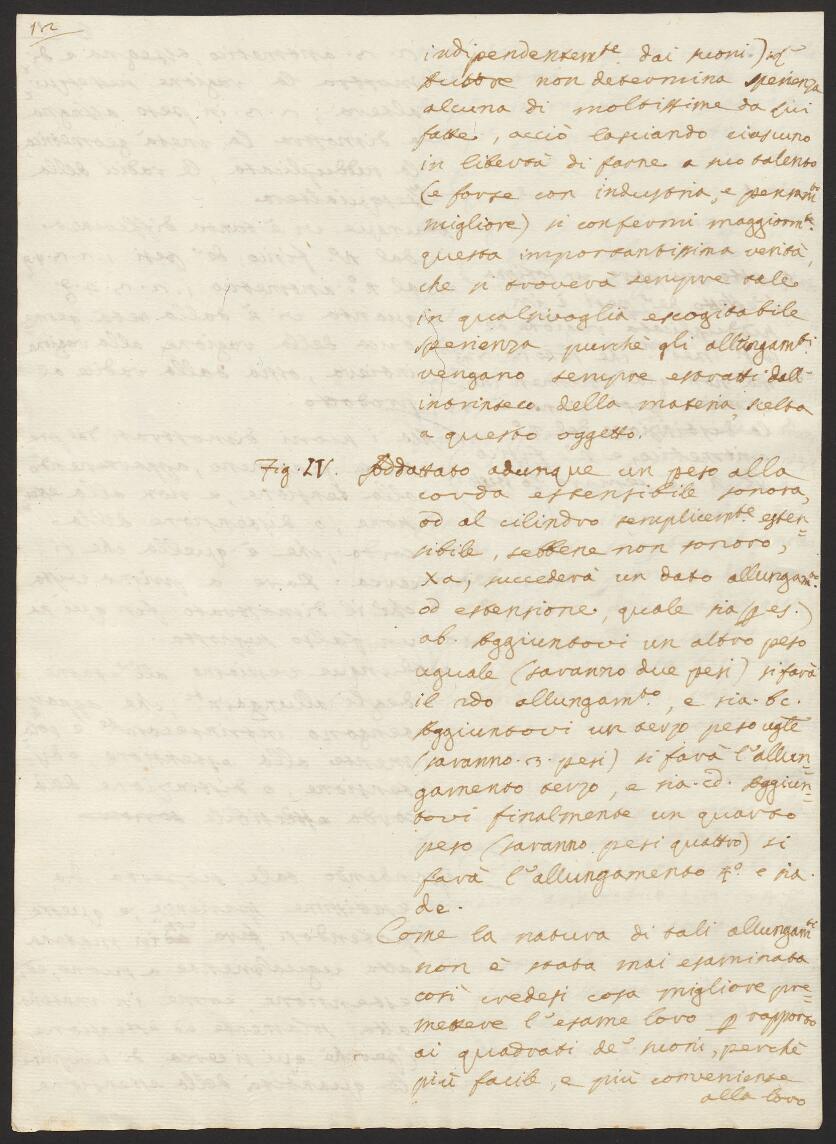 12
indipendentem.te dai suoni.) L'
Auttore non determina sperienza
alcuna di moltissime da Lui
fatte, acciò lasciando ciascuno
in libertà di farne a suo talento
(e forse con industria, e pensam.to
migliore) si confermi maggiorm.te
questa importantissima verità,
che si troverà sempre tale
in qualsivoglia escogitabile
sperienza purchè gli allungam.ti
vengano sempre estratti dall'
intrinseco della materia scelta
a questo oggetto.
Fig. IV. Addattato adunque un peso alla
corda estensibile sonora,
od al cilindro semplicem.te esten=
sibile, sebbene non sonoro,
Xa, succederà un dato allungam.to
od estensione, quale sia (p es.)
ab. Aggiuntovi un altro peso
uguale (saranno due pesi) si farà
il 2do allungam.to, e sia bc.
Aggiuntovi un terzo peso ugle
(saranno 3 pesi) si farà l'allun=
gamento terzo, e sia cd. Aggiun=
tovi finalmente un quarto
peso (saranno pesi quattro) si
farà l'allungamento 4.o e sia
de.
Come la natura di tali allungam.ti
non è stata mai esaminata
così credesi cosa migliore pre=
mettere l'esame loro p rapporto
ai quadrati de' suoni, perchè
più facile, e più conveniente
alla loro